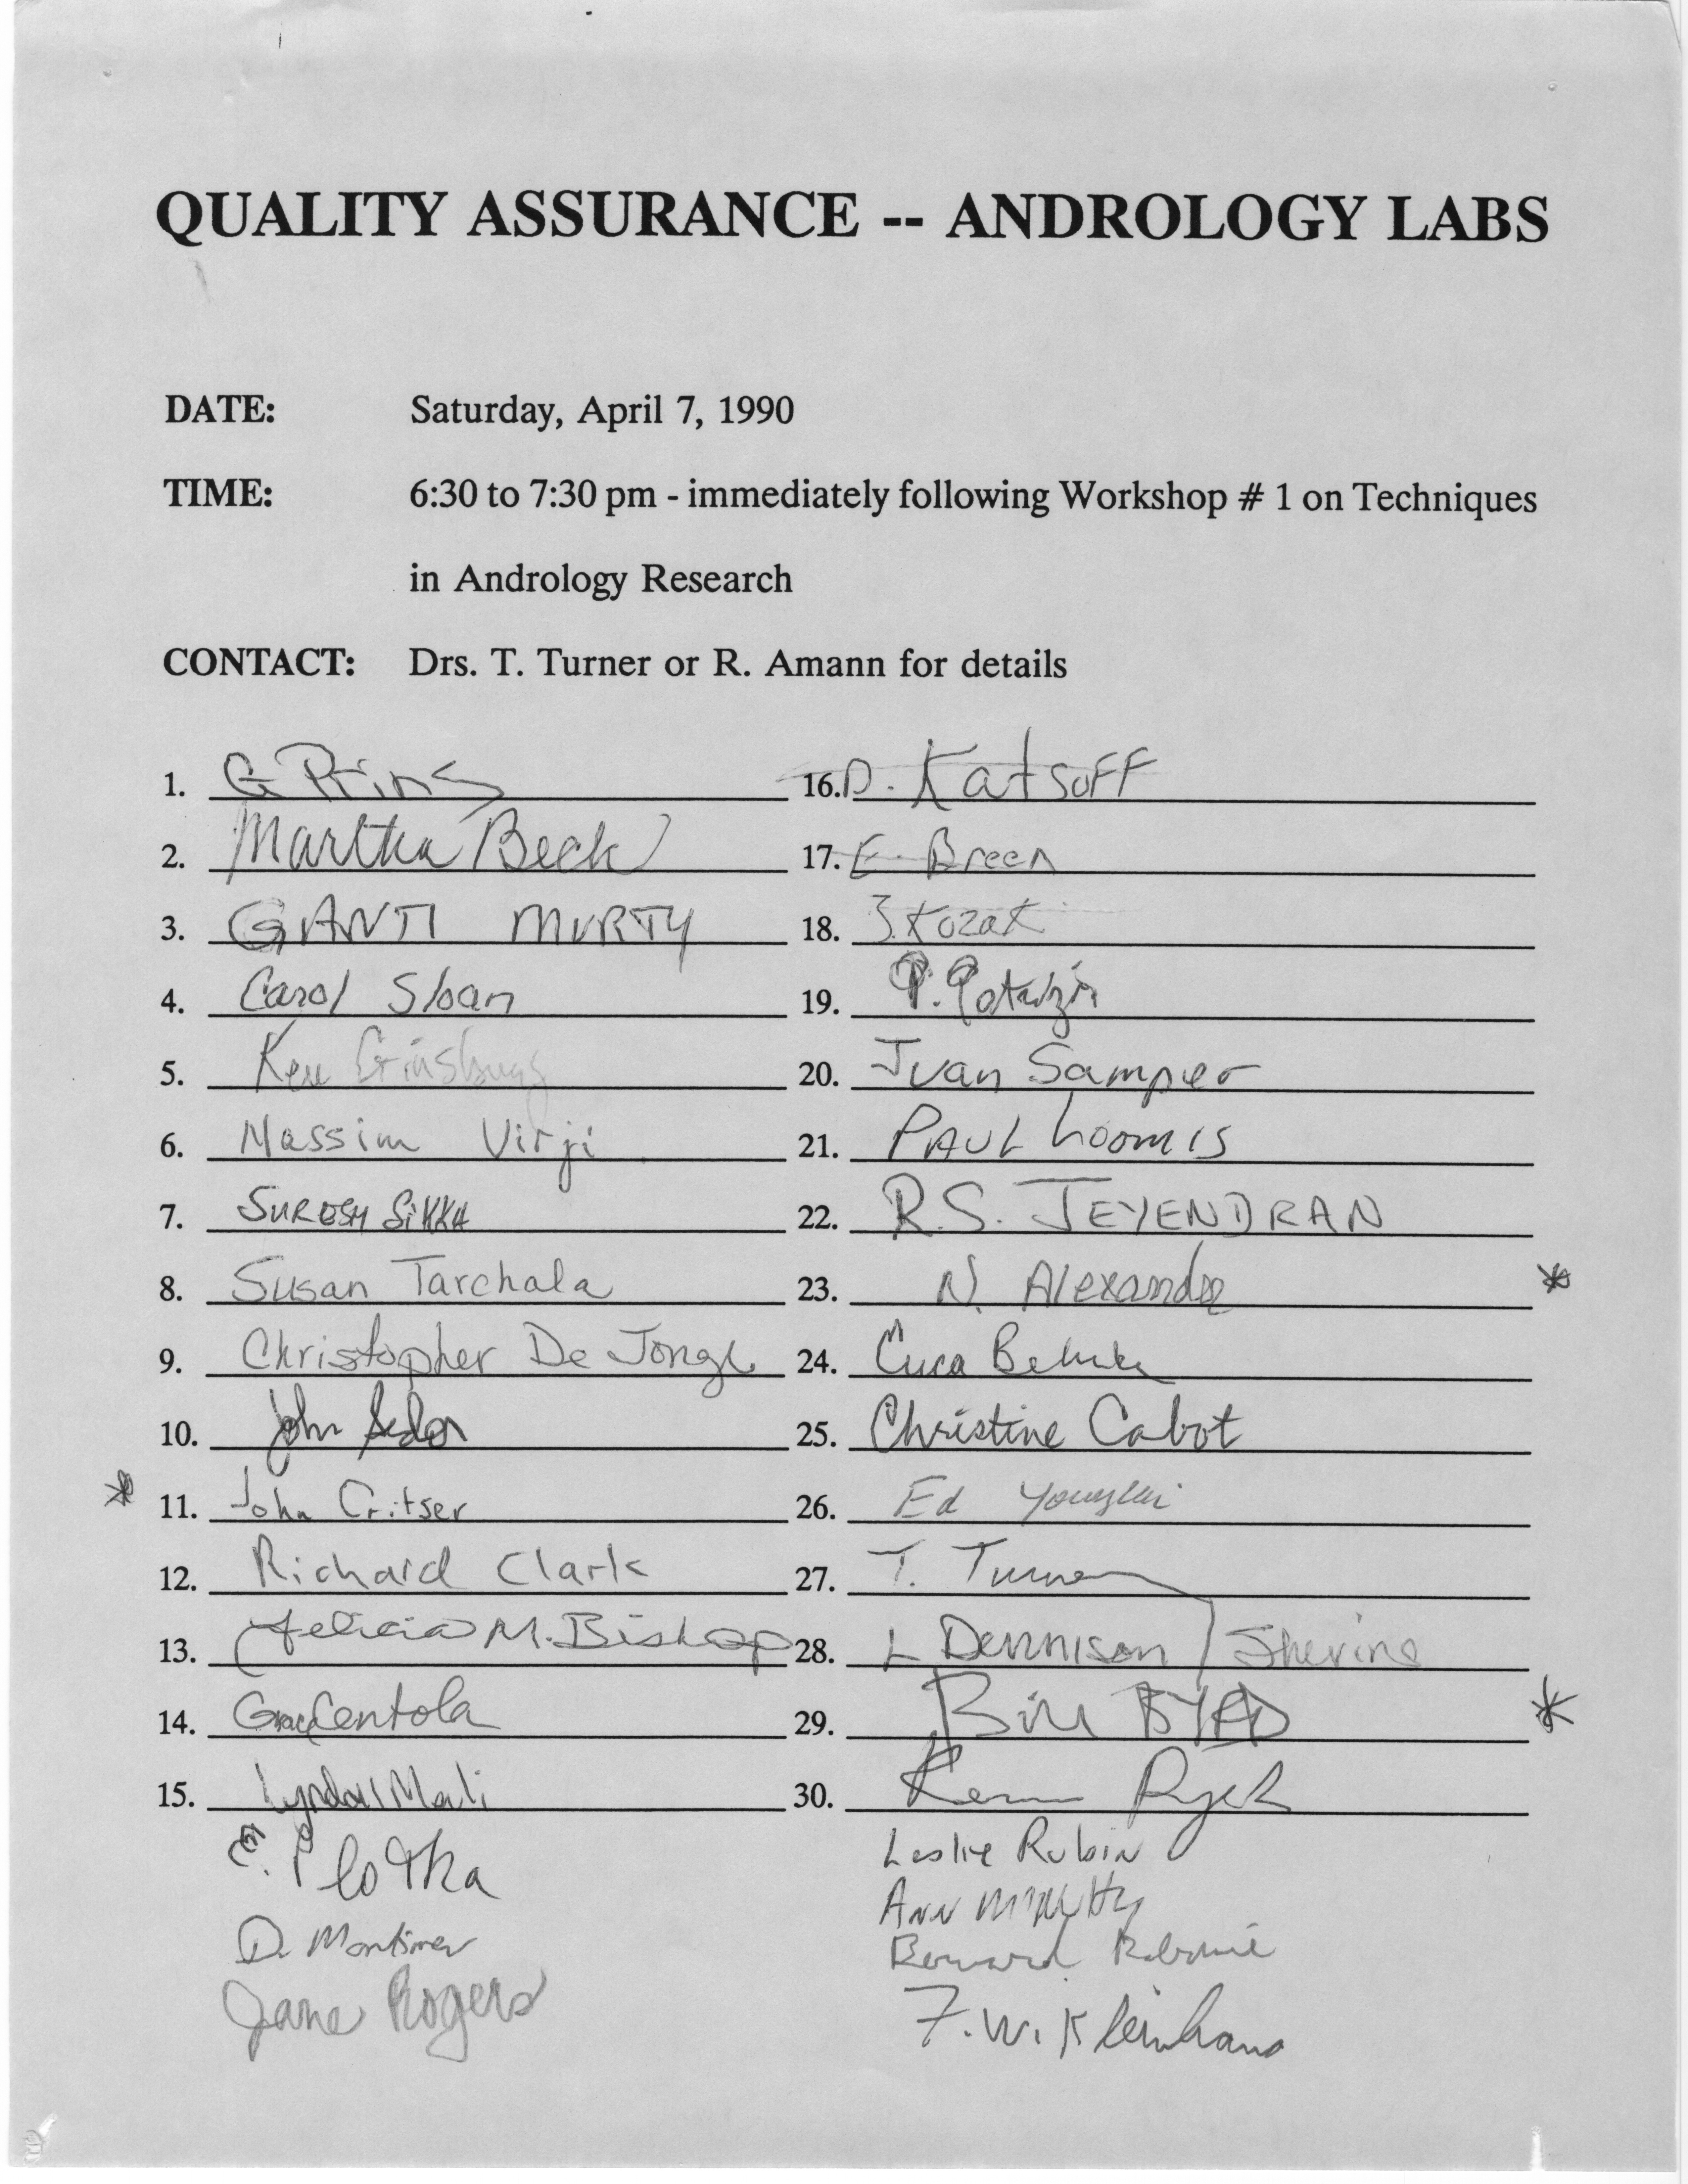 QUALITY ASSURANCE -- ANDROLOGY LABS
DATE: Saturday, April 7, 1990
TIME: 6:30 to 7:30 pm - immediately following Workshop # 1 on Techniques
in Andrology Research
CONTACT: Drs. T. Turner or R. Amann for details
1. G Prins
2. Martha Beck
3. GANTI MURTY
4. Carol Sloan
5. Ken Ginsburg
6. Massim Virji
7. SURESH SIKKA
8. Susan Tarchala
9. Christopher De Jonge
10. John
* 11. John Critser
12. Richard Clark
13. Felicia M. Bishop
14. Grace Centola
15.
E. Plotka
D. Mortimer
Jane Rogers
16. D. Katsoff
17. E. Breen
18. Kozak
19. P.
20. Juan Sampier
21. PAUL Loomis
22. R.S. JEYENDRAN
23. N. Alexander *
24.
25. Christine Cabot
26. Ed Younglai
27. T. Turner
28. L Dennison / Shevine
29. Bill BYRD *
30.
Leslie Rubin
Ann
Bernard
F.W. Kleinhans